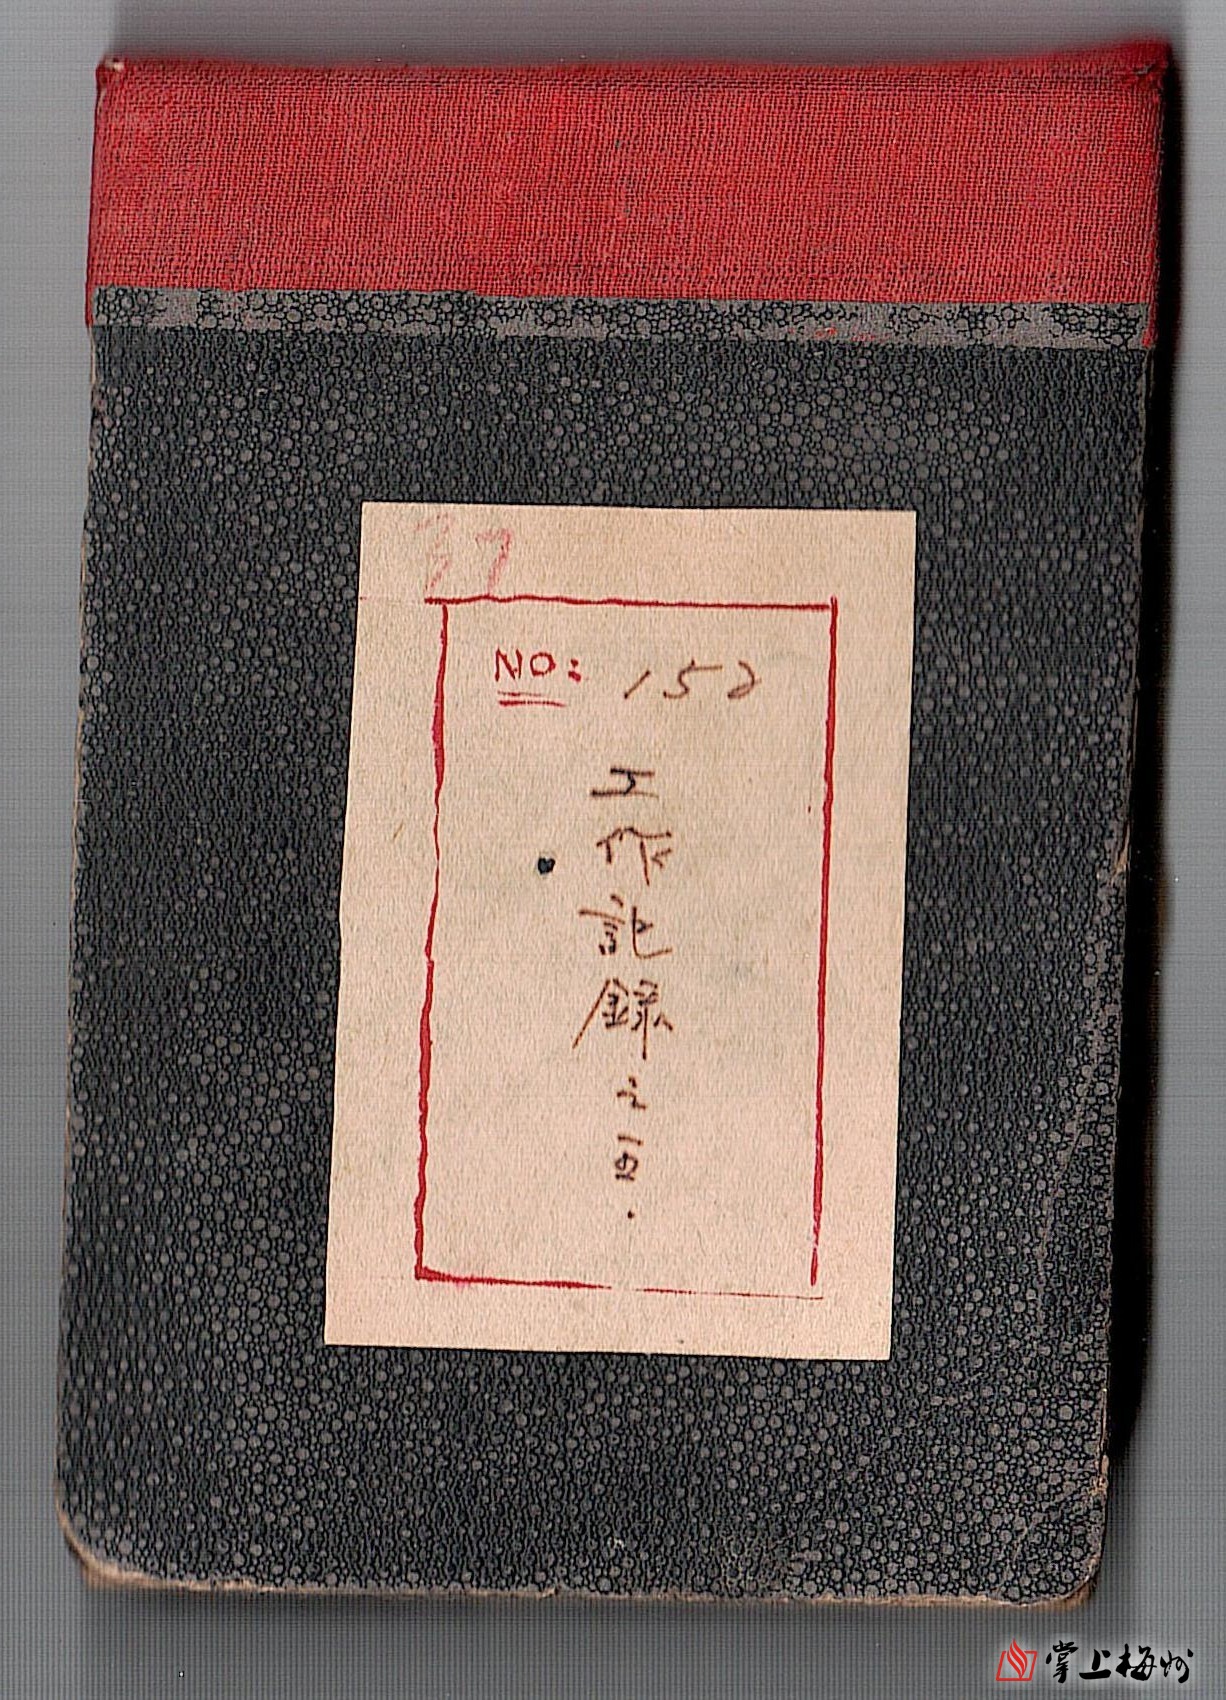 37
NO: 152
工作記録之四.
掌上梅州